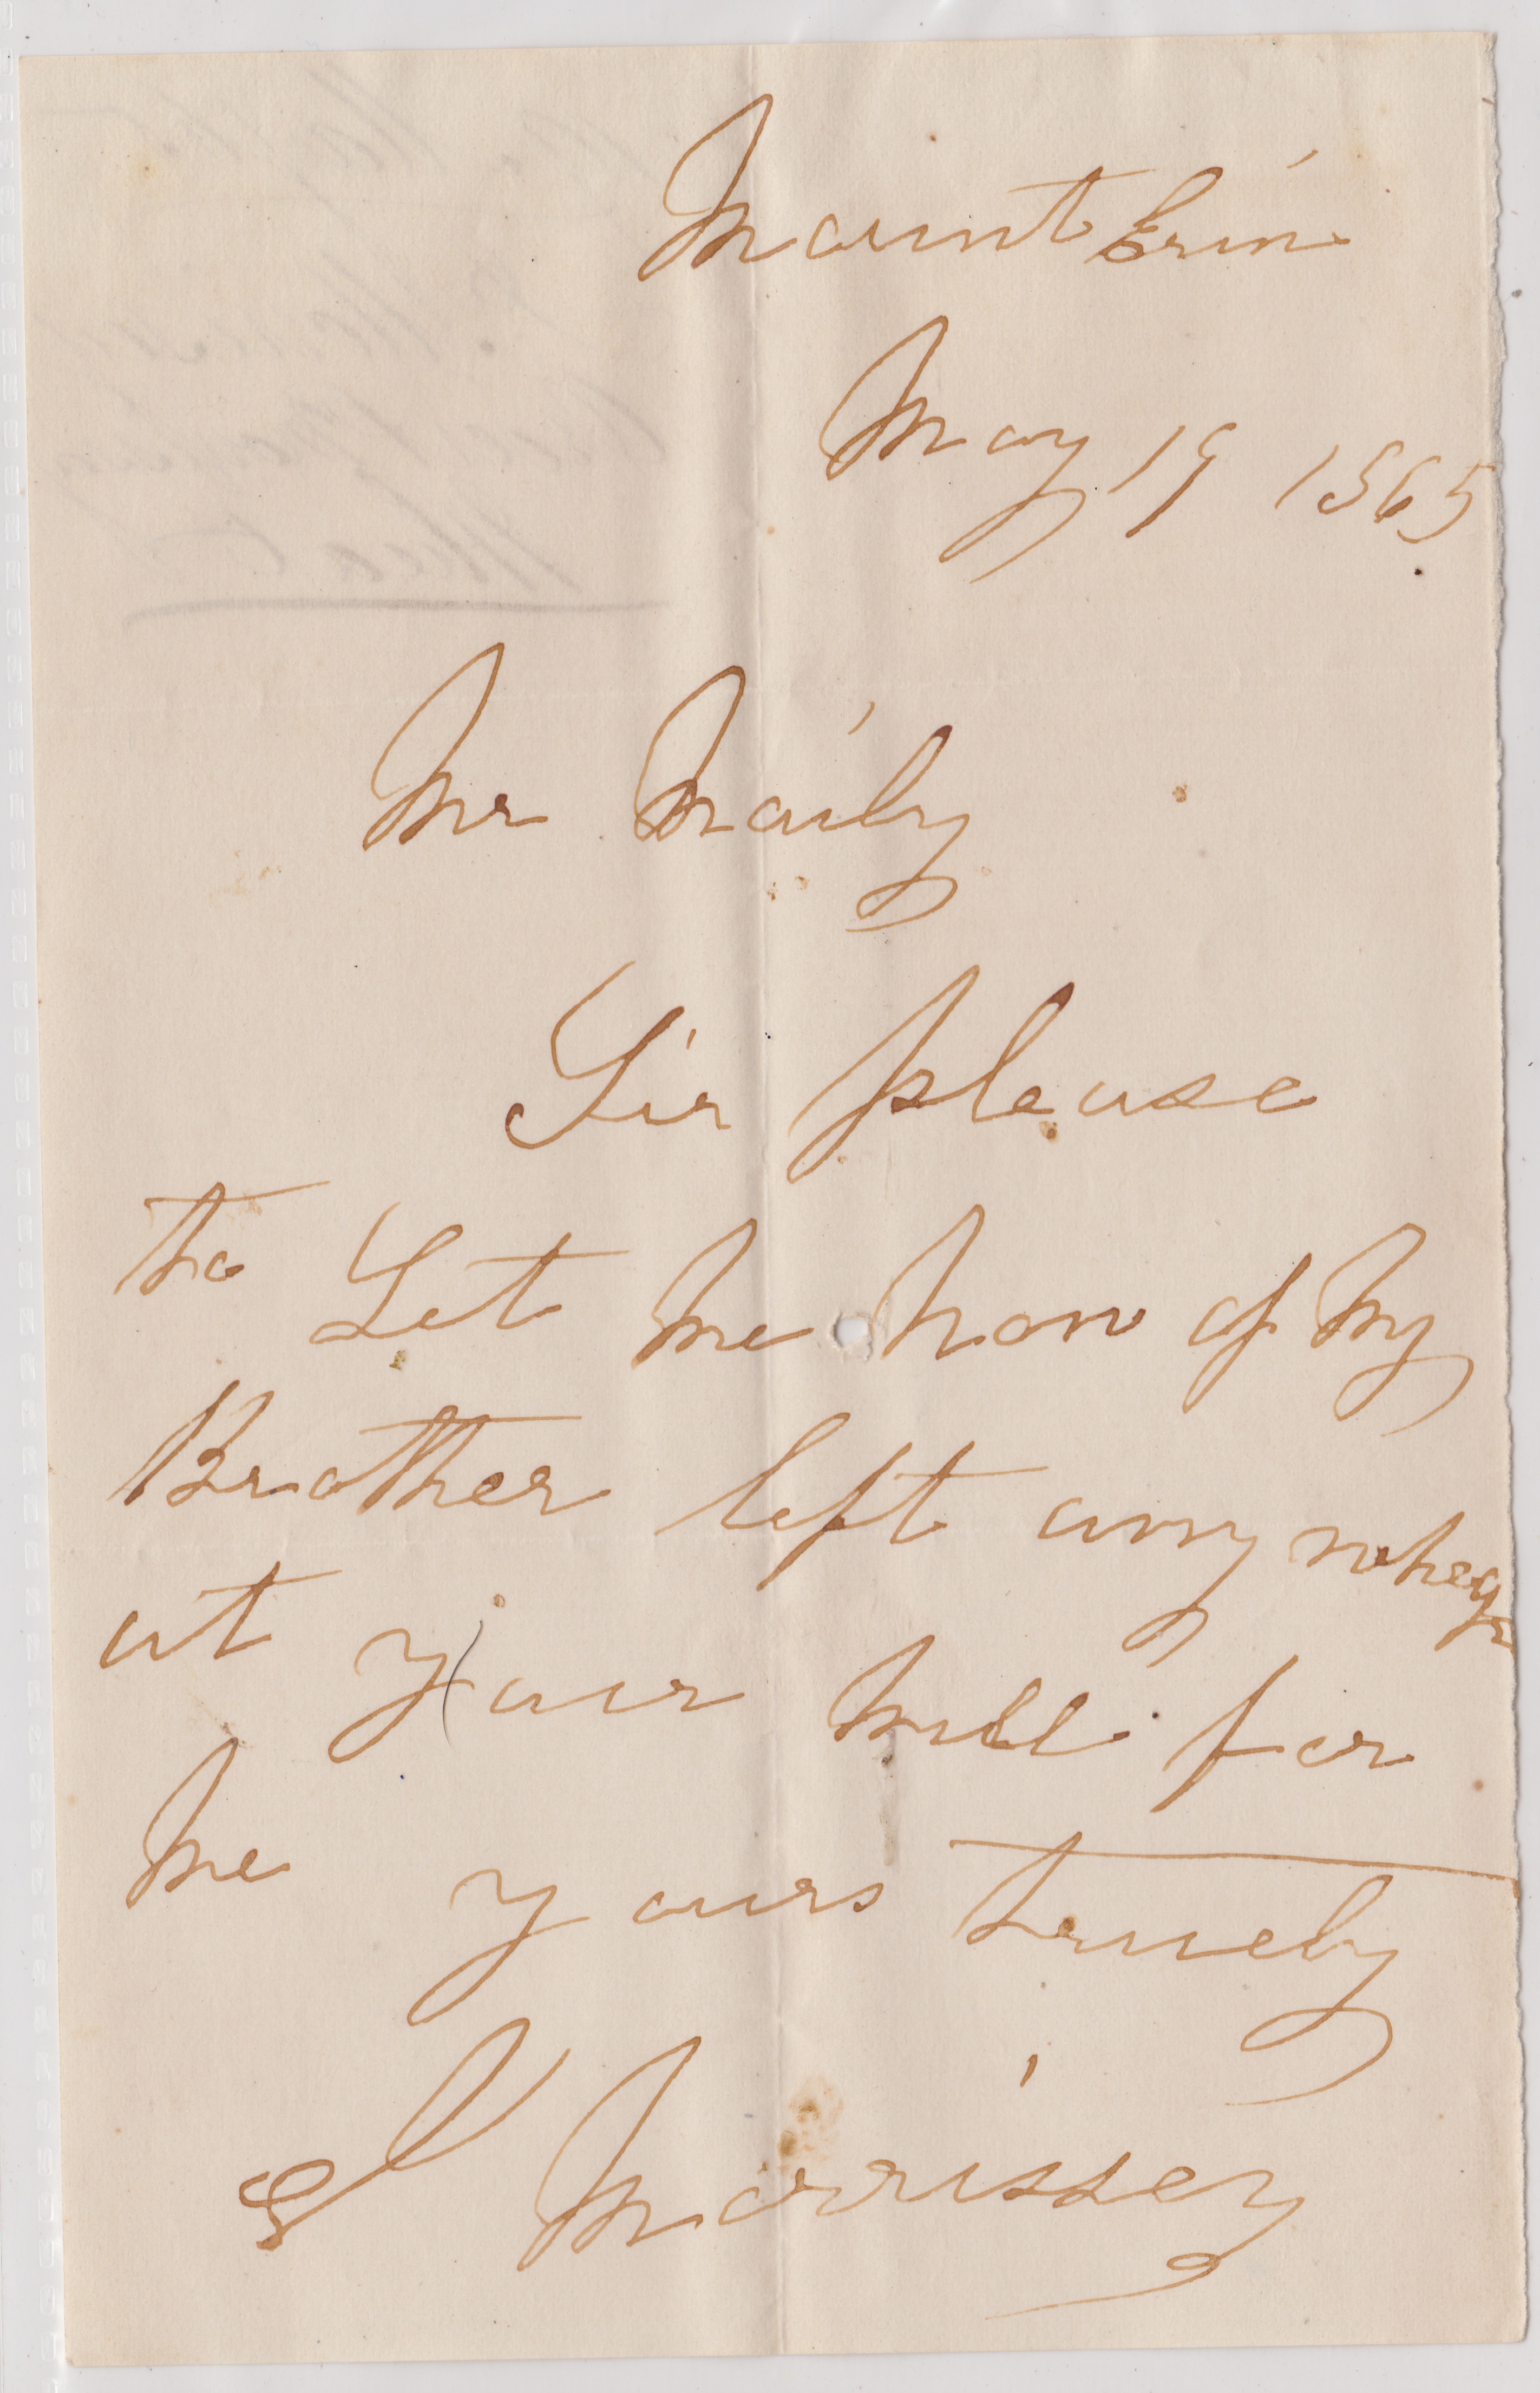 Mount Erin
May 19 1865
Mr
Sir please
to Let me now if My
Brother left any wheat
at your mill for
me yours truely
Morrissey